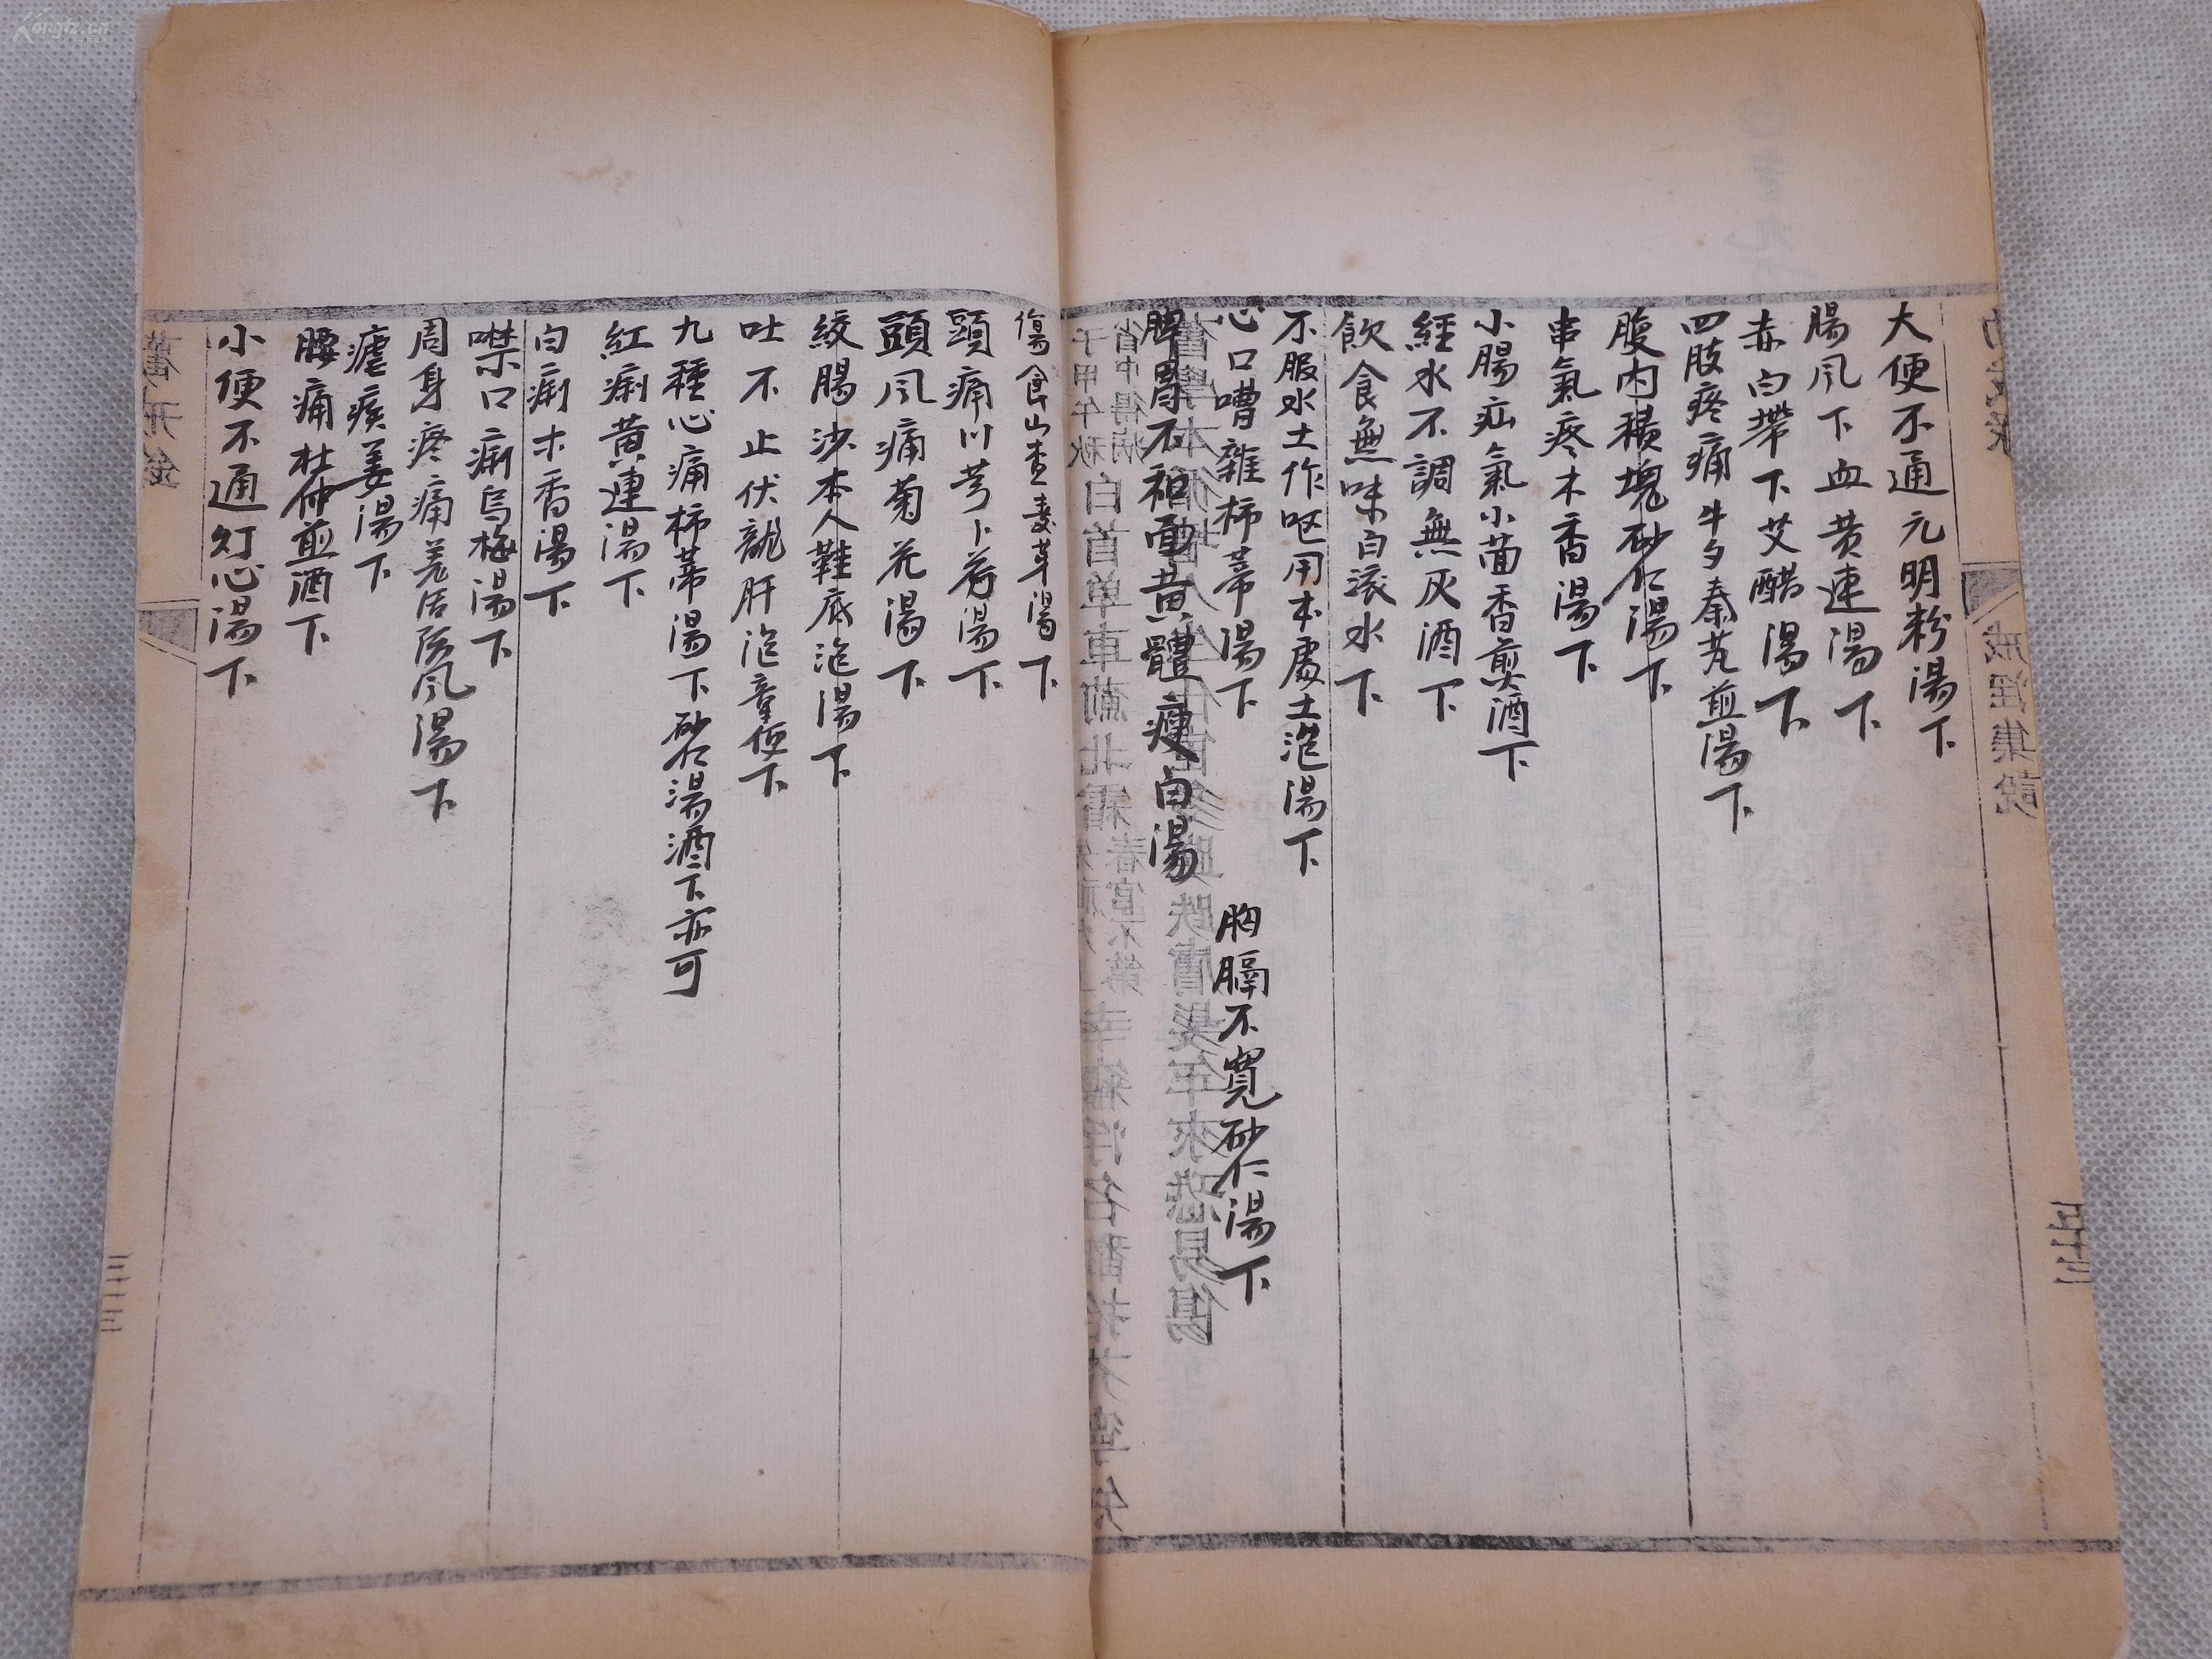 大便不通元明粉湯下
腸风下血黄連湯下
赤白帶下艾醋湯下
四肢疼痛牛夕秦艽煎湯下
腹内積塊砂仁湯下
串氣疼木香湯下
小腸疝氣小茴香煎酒下
經水不調無灰酒下
飲食無味白滚水下
不服水土作呕用本處土泡湯下
心口嘈雜柿蒂湯下
胸膈不寬砂仁湯下
脾胃不和面黄體瘦白湯
傷食山查麦芽湯下
頭痛川芎卜荷湯下
頭风痛菊花湯下
絞腸沙本人鞋底泡湯下
吐不止伏龍肝泡童便下
九種心痛柿蒂湯下砂仁湯酒下亦可
紅痢黄連湯下
白痢木香湯下
噤口痢烏梅湯下
周身疼痛羌活防风湯下
瘧疾姜湯下
腰痛杜仲煎酒下
小便不通灯心湯下
戒淫集說
Kongfz.cn